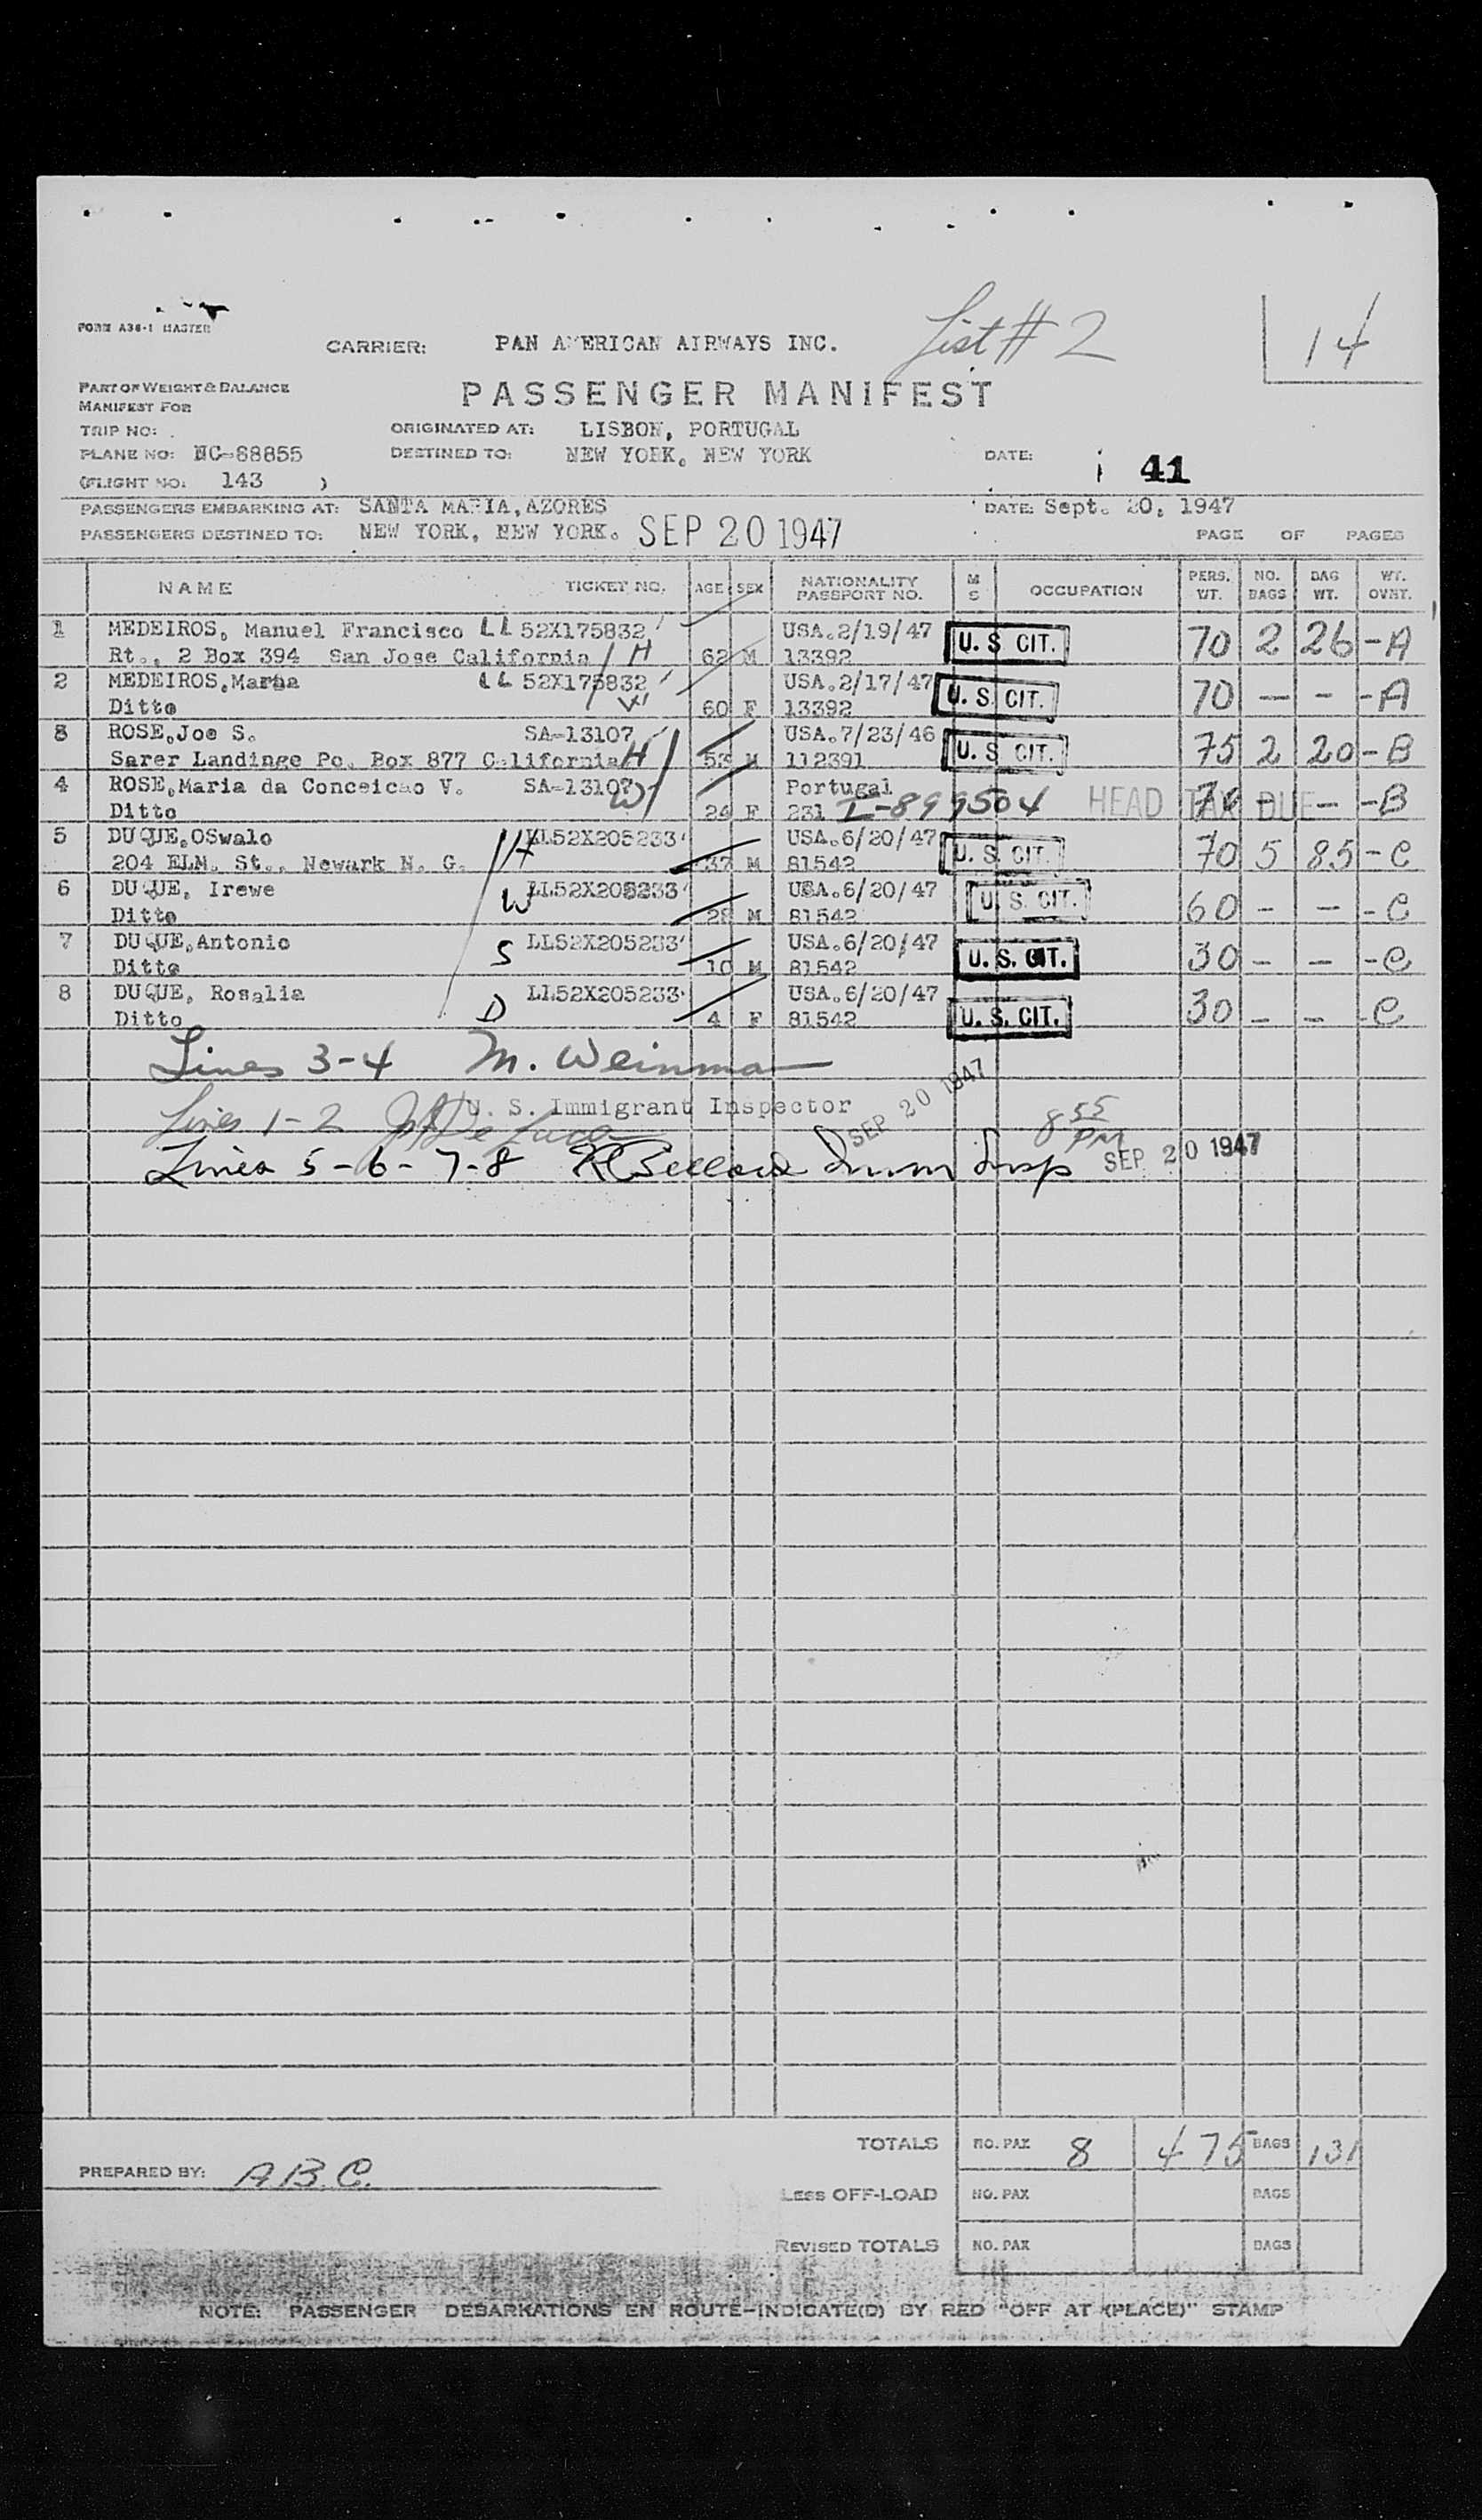 List # 2
14
FORM A36-1 MASTER
CARRIER: PAN AMERICAN AIRWAYS INC.
PART OF WEIGHT & BALANCE
MANIFEST FOR
PASSENGER MANIFEST
TRIP NO: ORIGINATED AT: LISBON, PORTUGAL
PLANE NO: NC-88855 DESTINED TO: NEW YORK. NEW YORK DATE: 41
(FLIGHT NO: 143 )
PASSENGERS EMBARKING AT: SANTA MARIA, AZORES DATE: Sept. 20, 1947
PASSENGERS DESTINED TO: NEW YORK, NEW YORK. SEP 20 1947 PAGE OF PAGES
NAME TICKET NO. AGE SEX NATIONALITY PASSPORT NO. M S OCCUPATION PERS. WT. NO. BAGS BAG WT. WT. OVHT.
1 MEDEIROS, Manuel Francisco LL 52X175832 USA.2/19/47 U. S CIT. 70 2 26 - A
Rt., 2 Box 394 San Jose California H 62 M 13392
2 MEDEIROS, Marha LL 52X175832 USA.2/17/47 U. S. CIT. 70 — - - A
Ditto W 60 F 13392
3 ROSE, Joe S. SA-13107 USA.7/23/46 U. S CIT. 75 2 20 - B
Sarer Landinge Po. Box 877 California H 53 M 112391
4 ROSE, Maria da Conceicao V. SA-13107 Portugal HEAD TAX DUE 70 - - - B
Ditto W 24 F 231 I-899504
5 DUQUE, OSwalo LL52X205233 USA.6/20/47 U. S. CIT. 70 5 85 - C
204 ELM. St., Newark N. G. H 37 M 81542
6 DUQUE, Irewe LL52X205233 USA.6/20/47 U. S. CIT. 60 - - - C
Ditto W 28 M 81542
7 DUQUE, Antonio LL52X205233 USA.6/20/47 U. S. CIT. 30 - - - C
Ditto S 10 M 81542
8 DUQUE, Rosalia LL52X205233 USA.6/20/47 U. S. CIT. 30 - - - C
Ditto D 4 F 81542
Lines 3-4 M. Weinman
U. S. Immigrant Inspector SEP 20 1947
Lines 1-2 8 55 PM
Lines 5-6-7-8 Imm Insp SEP 20 1947
TOTALS NO. PAX 8 475 BAGS 131
PREPARED BY: A.B.C.
LESS OFF-LOAD NO. PAX BAGS
REVISED TOTALS NO. PAX BAGS
NOTE: PASSENGER DEBARKATIONS EN ROUTE-INDICATE(D) BY RED "OFF AT (PLACE)" STAMP